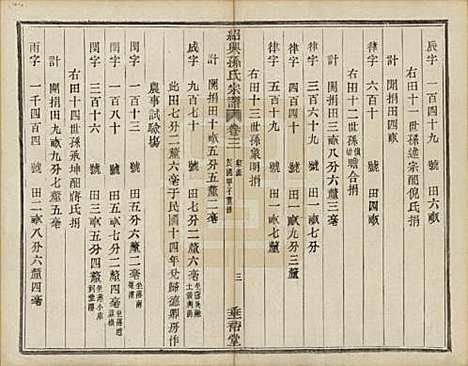 辰字 一百四十九 號 田六畝
右田十一世孫達宗配倪氏捐
計 開捐田四畝
律字 六百十 號 田四畝
右田十二世孫 曉 合捐
計 開捐田三畝八分八釐二毫
律字 三百六十九 號 田一畝七分
律字 三百六十八 號 田一畝七釐
右田十三世孫象明捐
紹興孫氏宗譜 卷三
三
垂裕堂
計 開捐田十畝五分五釐二毫
成字 一百九十二 號 田九畝二分七釐六毫
此田七分二釐六毫于民國十四年兌歸德鄰房作
農事試驗塲
閏字 一百十三 號 田三畝五分六釐二毫
閏字 一百八十 號 田三畝五分四毫
閏字 三百十六 號 田三畝五分四釐
右田十四世孫承坤配蔣氏捐
計 開捐田十九畝九分七釐五毫
雨字 一千四百四 號 田二畝八分六釐四毫